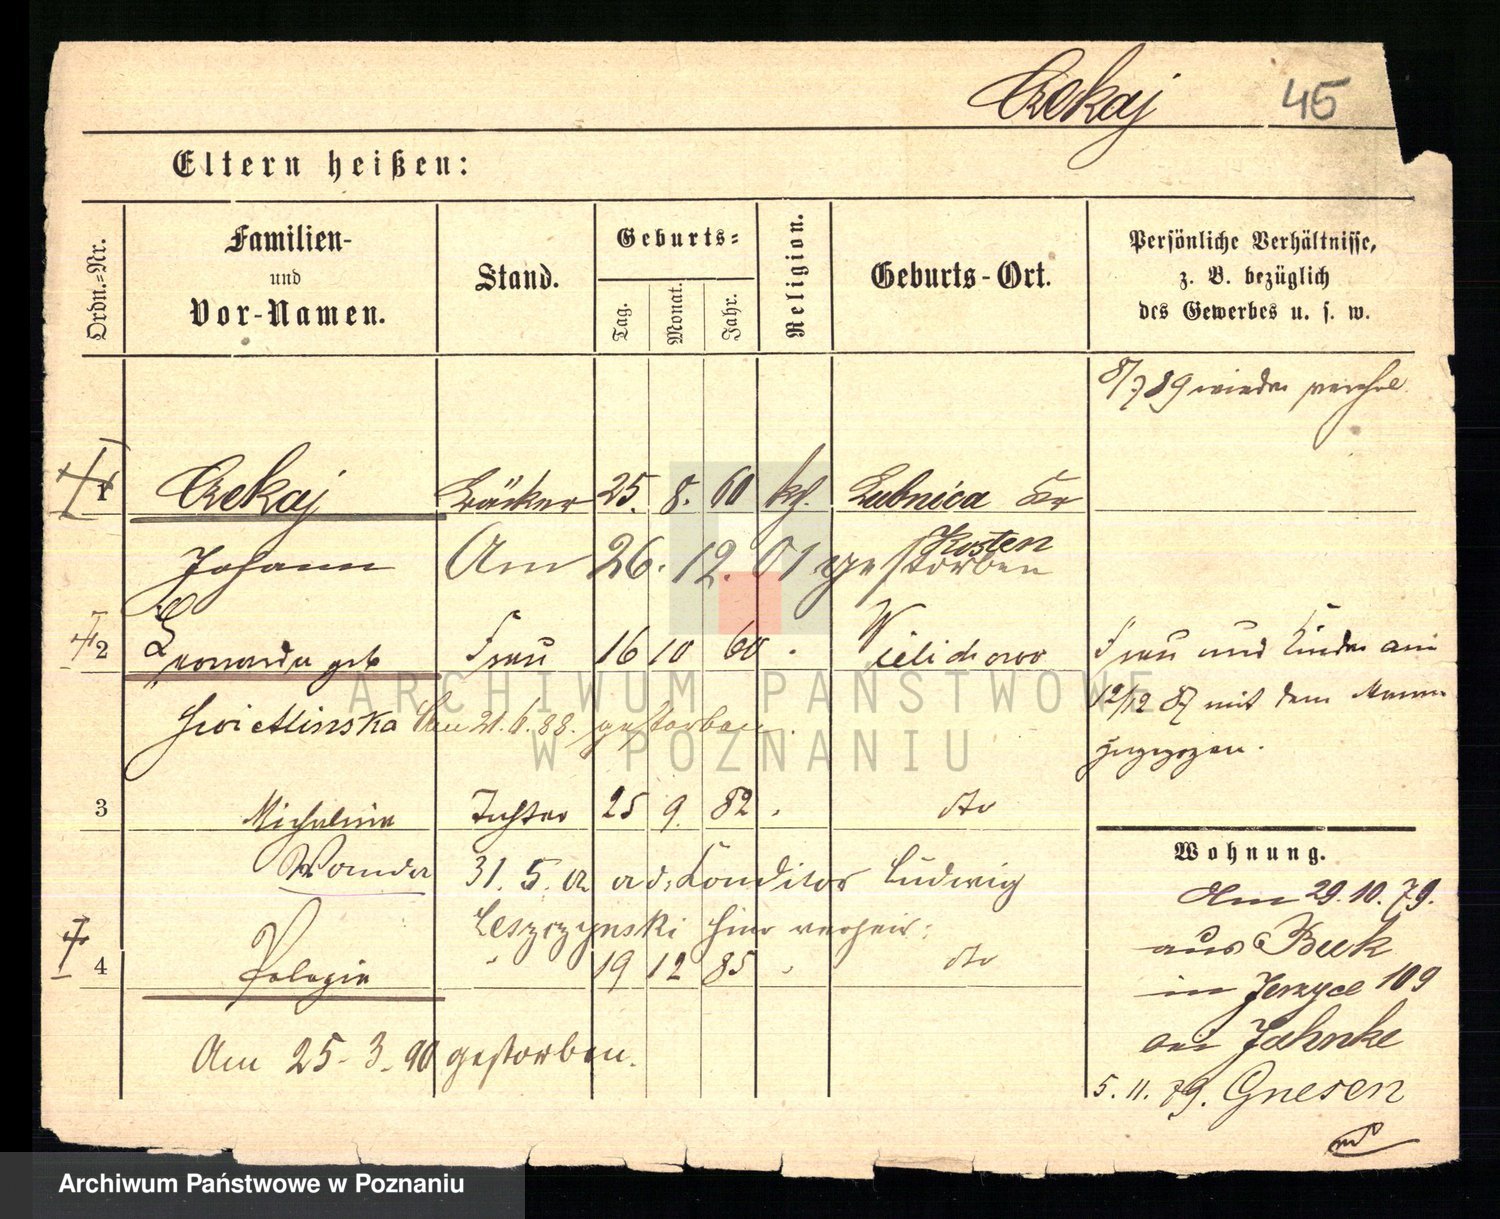 Czekaj 45
Eltern heißen:
Ordn.-Nr.
Familien-
und
Vor-Namen.
Stand.
Geburts-
Tag.
Monat.
Jahr.
Religion.
Geburts-Ort.
Persönliche Verhältnisse,
z. B. bezüglich
des Gewerbes u. s. w.
8/7 89 wieder
1 Czekaj Bäcker 25. 8. 60 kth. Lubnica Kr
Kosten
Johann Am 26. 12. 01 gestorben
2 Leonarda geb Frau 16 10 60 Wielichowo
Swietlinska Am 21.6.88. gestorben.
Frau und Kinder am
12/12 87 mit dem Mann
zugezogen.
3 Michalina Tochter 25 9. 82 dto
Wanda 31. 5. 02 a. d. Konditor Ludwig
Leszczynski hier verheir:
4 Pelagia " 19 12 85 dto
Am 25-3.90 gestorben.
Wohnung.
Am 29.10.79.
aus Buk
in Jerzyce 109
bei Jahnke
5. 11. 79. Gnesen
ARCHIWUM PAŃSTWOWE
W POZNANIU
Archiwum Państwowe w Poznaniu